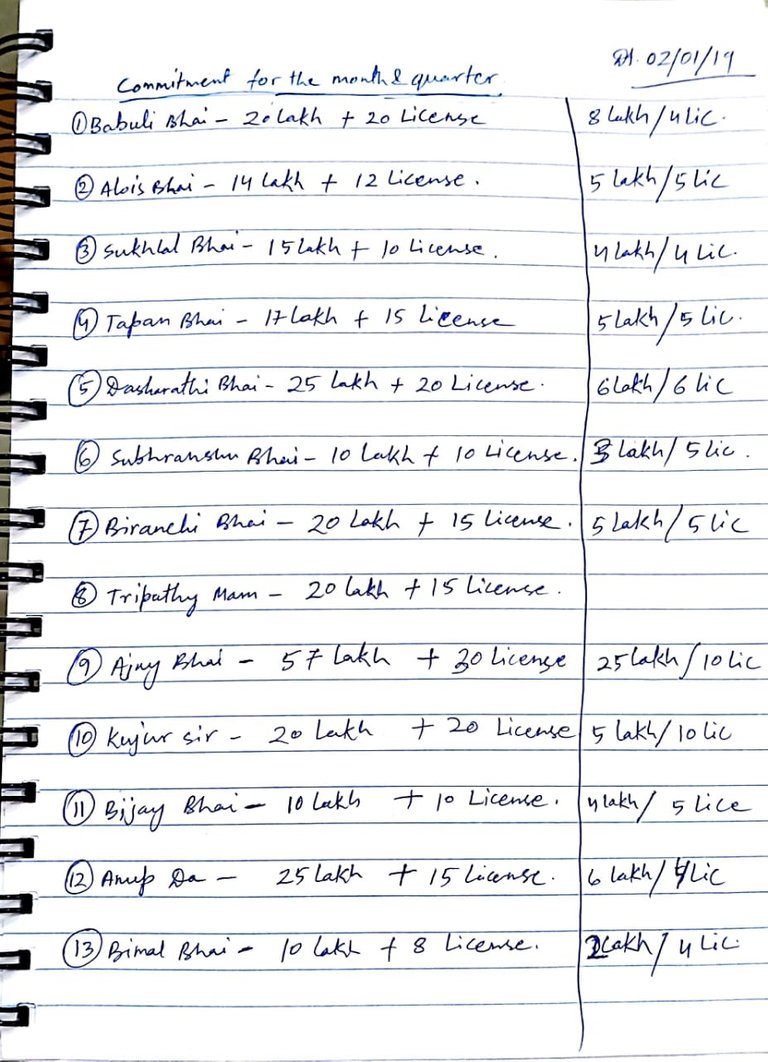 Dt. 02/01/19
Commitment for the month & quarter
① Babuli Bhai - 20 Lakh + 20 License 8 Lakh / 4 Lic.
② Alois Bhai - 14 Lakh + 12 License. 5 Lakh / 5 Lic
③ Sukhlal Bhai - 15 Lakh + 10 License. 4 Lakh / 4 Lic.
④ Tapan Bhai - 17 Lakh + 15 License 5 Lakh / 5 Lic.
⑤ Dasharathi Bhai - 25 Lakh + 20 License. 6 Lakh / 6 Lic
⑥ Subhranshu Bhai - 10 Lakh + 10 License. Lakh / 5 Lic.
⑦ Biranchi Bhai - 20 Lakh + 15 License. 5 Lakh / 5 Lic
⑧ Tripathy Mam - 20 Lakh + 15 License.
⑨ Ajay Bhai - 57 Lakh + 30 License 25 Lakh / 10 Lic
⑩ Kujur sir - 20 Lakh + 20 License 5 Lakh / 10 Lic
⑪ Bijay Bhai - 10 Lakh + 10 License. 4 Lakh / 5 Lice
⑫ Anup Da - 25 Lakh + 15 License. 6 Lakh / Lic
⑬ Bimal Bhai - 10 Lakh + 8 License. 2 Lakh / 4 Lic.